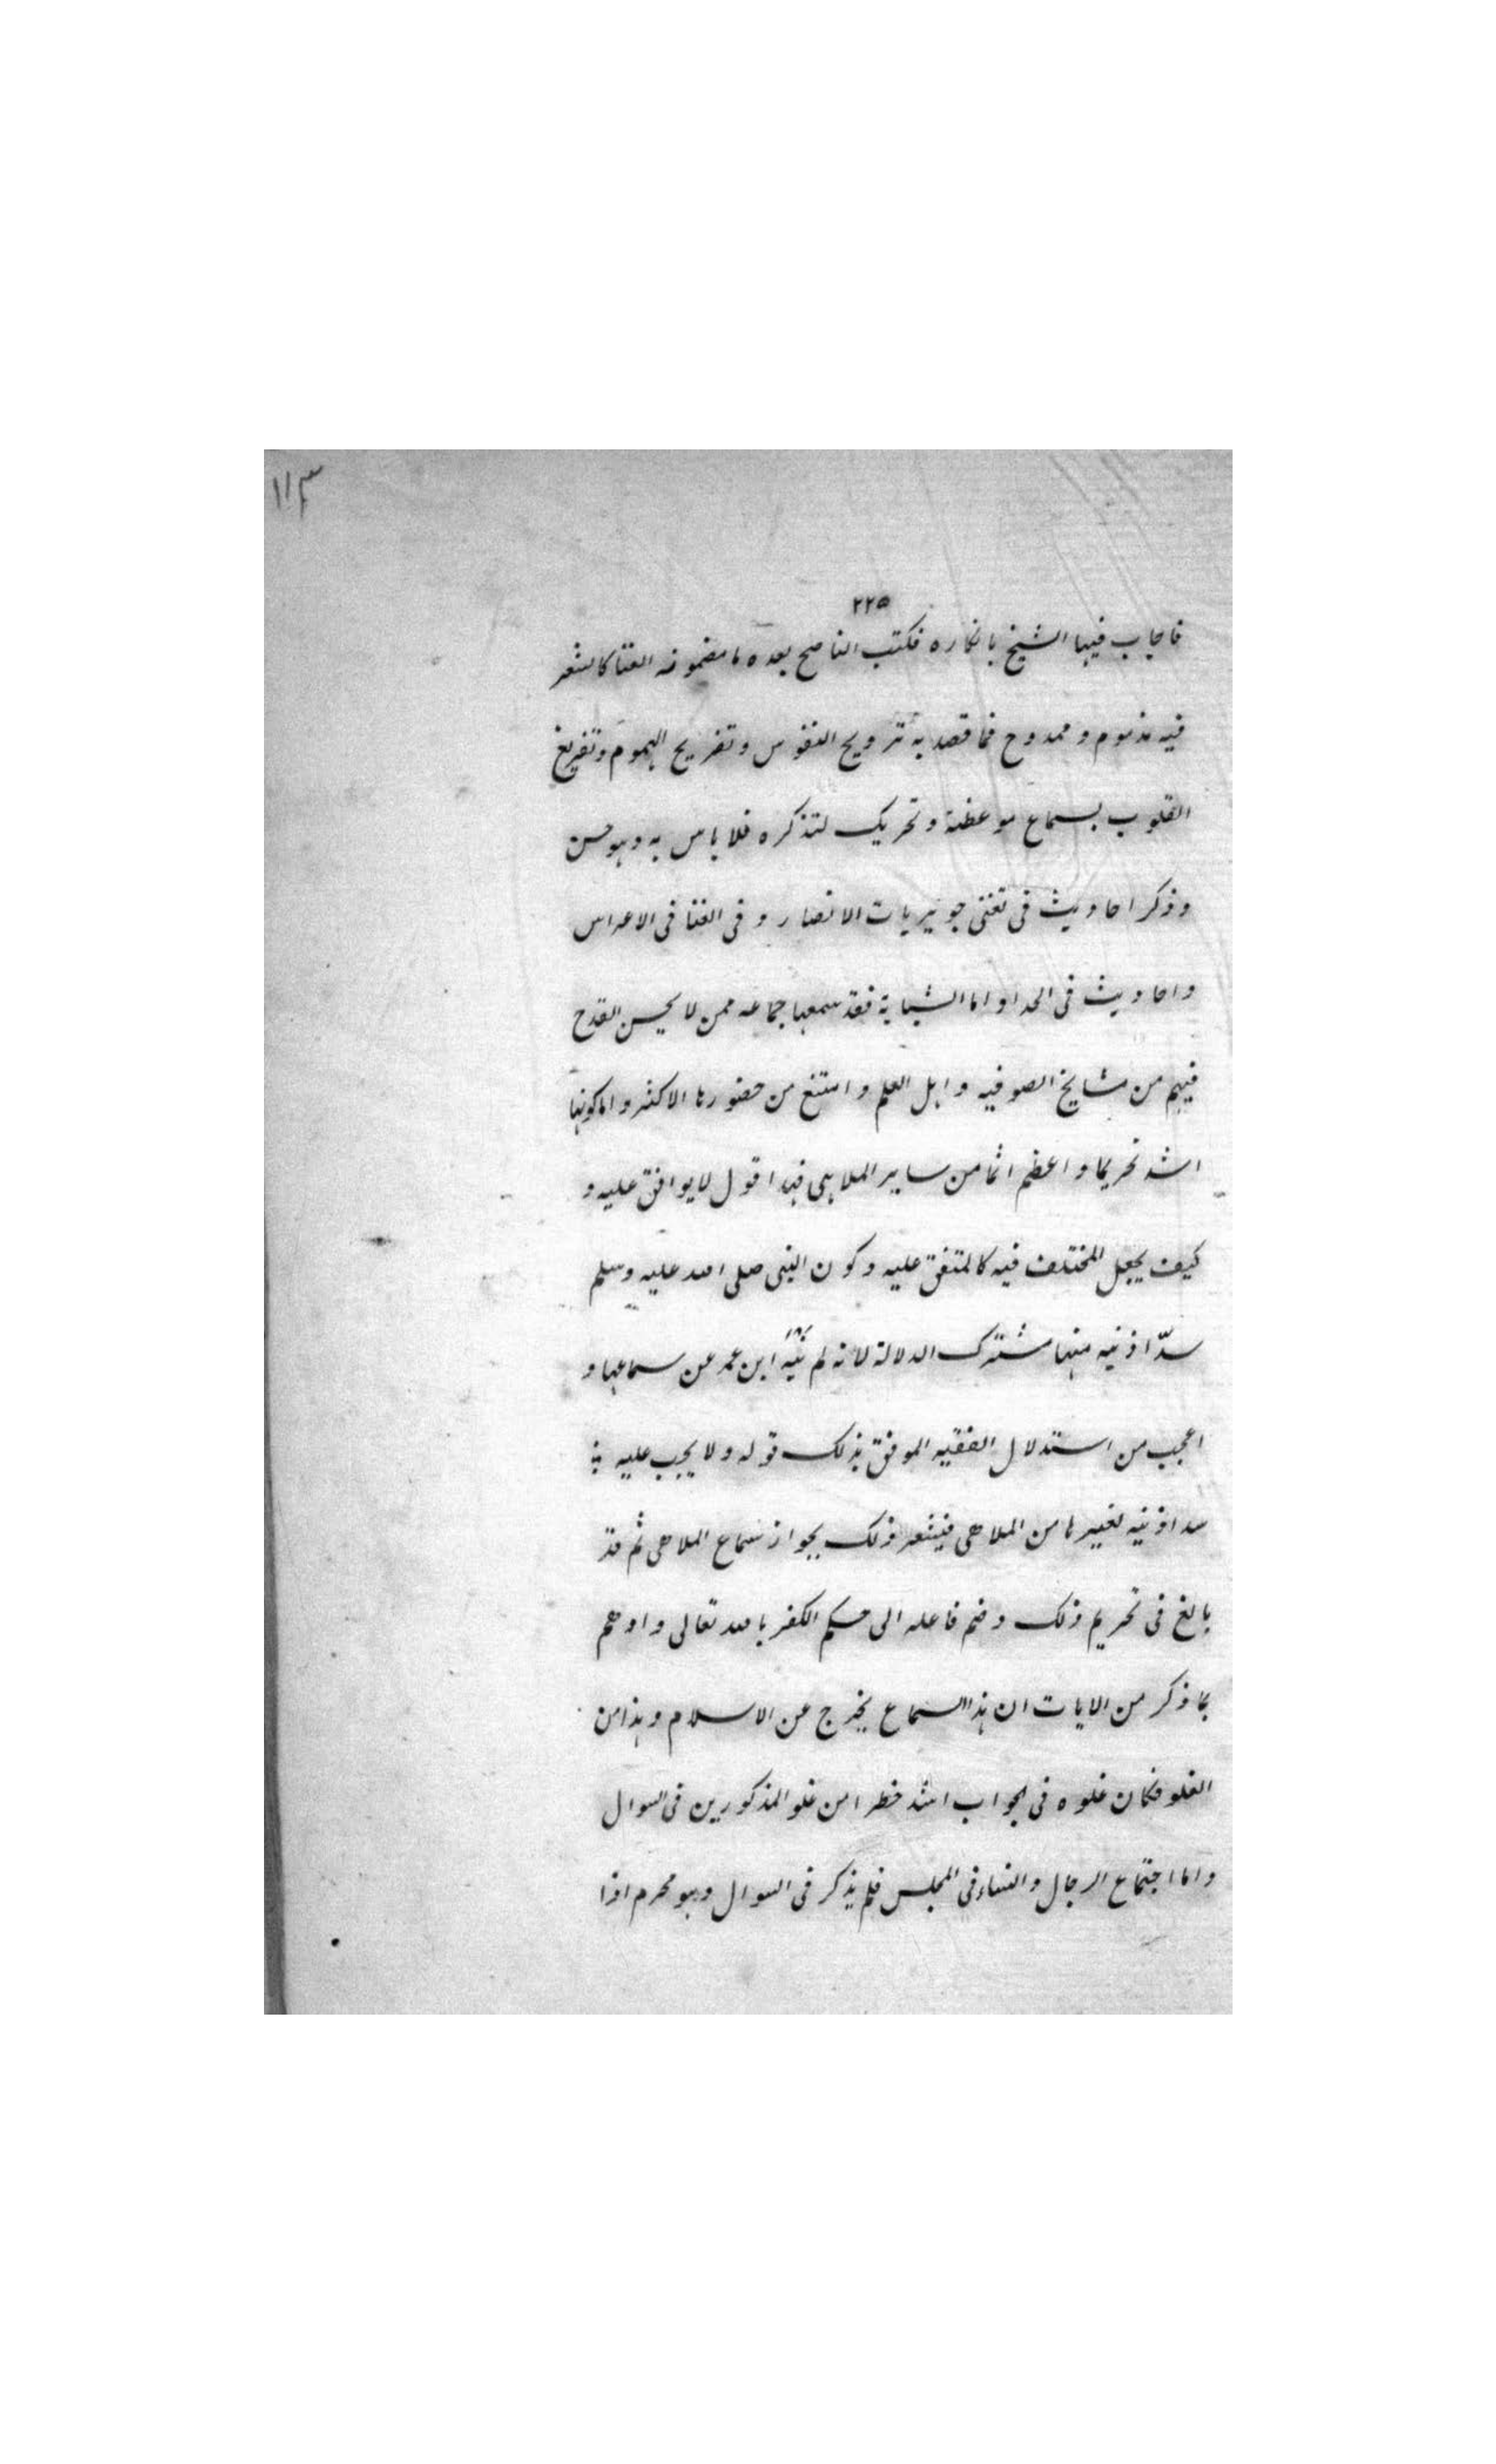 ١١٣
٢٢٥
فاجاب فيها الشيخ بانكاره فكتب الناصح بعده ما مضمونه الغنا كالشعر
فيه مذموم و ممدوح فما قصد به ترويح النفوس و تفريح الهموم و تفريغ
القلوب بسماع موعظة و تحريك لتذكره فلا باس به و هو حسن
و ذكر احاديث فى تغنى جويريات الانصار و فى الغنا فى الاعراس
و احاديث فى الحدا و اما الشبابة فقد سمعها جماعه ممن لا يحسن القدح
فيهم من مشايخ الصوفيه و اهل العلم و امتنع من حضورها الاكثر و اما كونها
اشد تحريما و اعظم اثما من ساير الملاهى فهذا قول لا يوافق عليه و
كيف يجعل المختلف فيه كالمتفق عليه و كون النبى صلى الله عليه وسلم
سدّ اذنيه منها مشترك الدلالة لانه لم ينه ابن عمر عن سماعها و
اعجب من استدلال الفقيه الموفق بذلك قوله و لا يجب عليه
سد اذنيه لغيرها من الملاهى فيشعر ذلك بجواز سماع الملاهى ثم قد
بالغ فى تحريم ذلك و ضم فاعله الى حكم الكفر بالله تعالى و اوهم
بما ذكر من الايات ان هذا السماع يخرج عن الاسلام و هذا من
الغلو فكان غلوه فى الجواب اشد خطرا من غلو المذكورين فى السوال
و اما اجتماع الرجال و النساء فى المجلس فلم يذكر فى السوال و هو محرم اذا